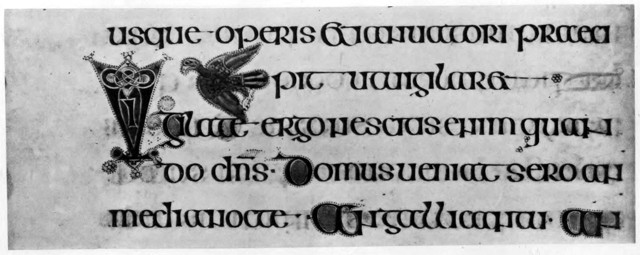 usque operis & ianuatori praeci
pit ut uigilar&
Uigilate ergo nescitis enim quan
do dn̄s · Domus ueniat sero an
media nocte · An galli cantu · an